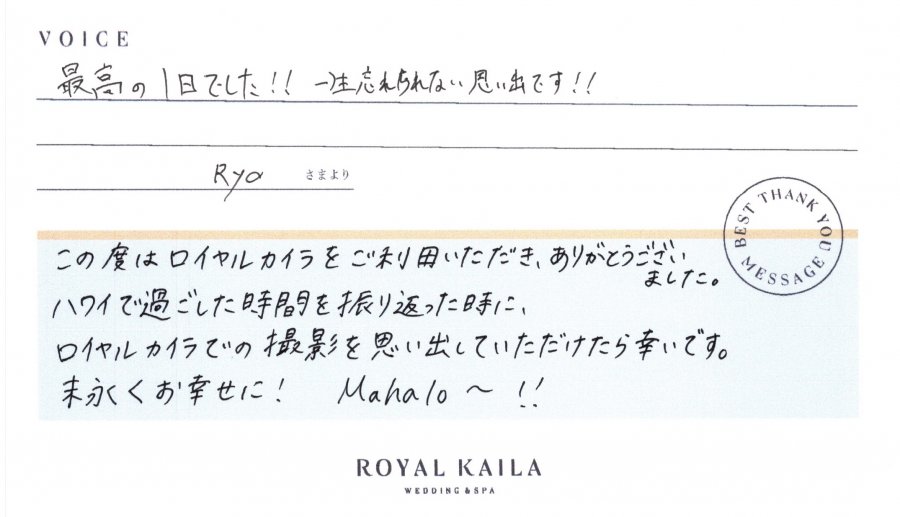 VOICE
最高の1日でした!! 一生忘れられない思い出です!!
Ryo さまより
BEST THANK YOU MESSAGE
この度はロイヤルカイラをご利用いただき、ありがとうござい
ました。
ハワイで過ごした時間を振り返った時に、
ロイヤルカイラでの撮影を思い出していただけたら幸いです。
末永くお幸せに! Mahalo〜!!
ROYAL KAILA
WEDDING & SPA